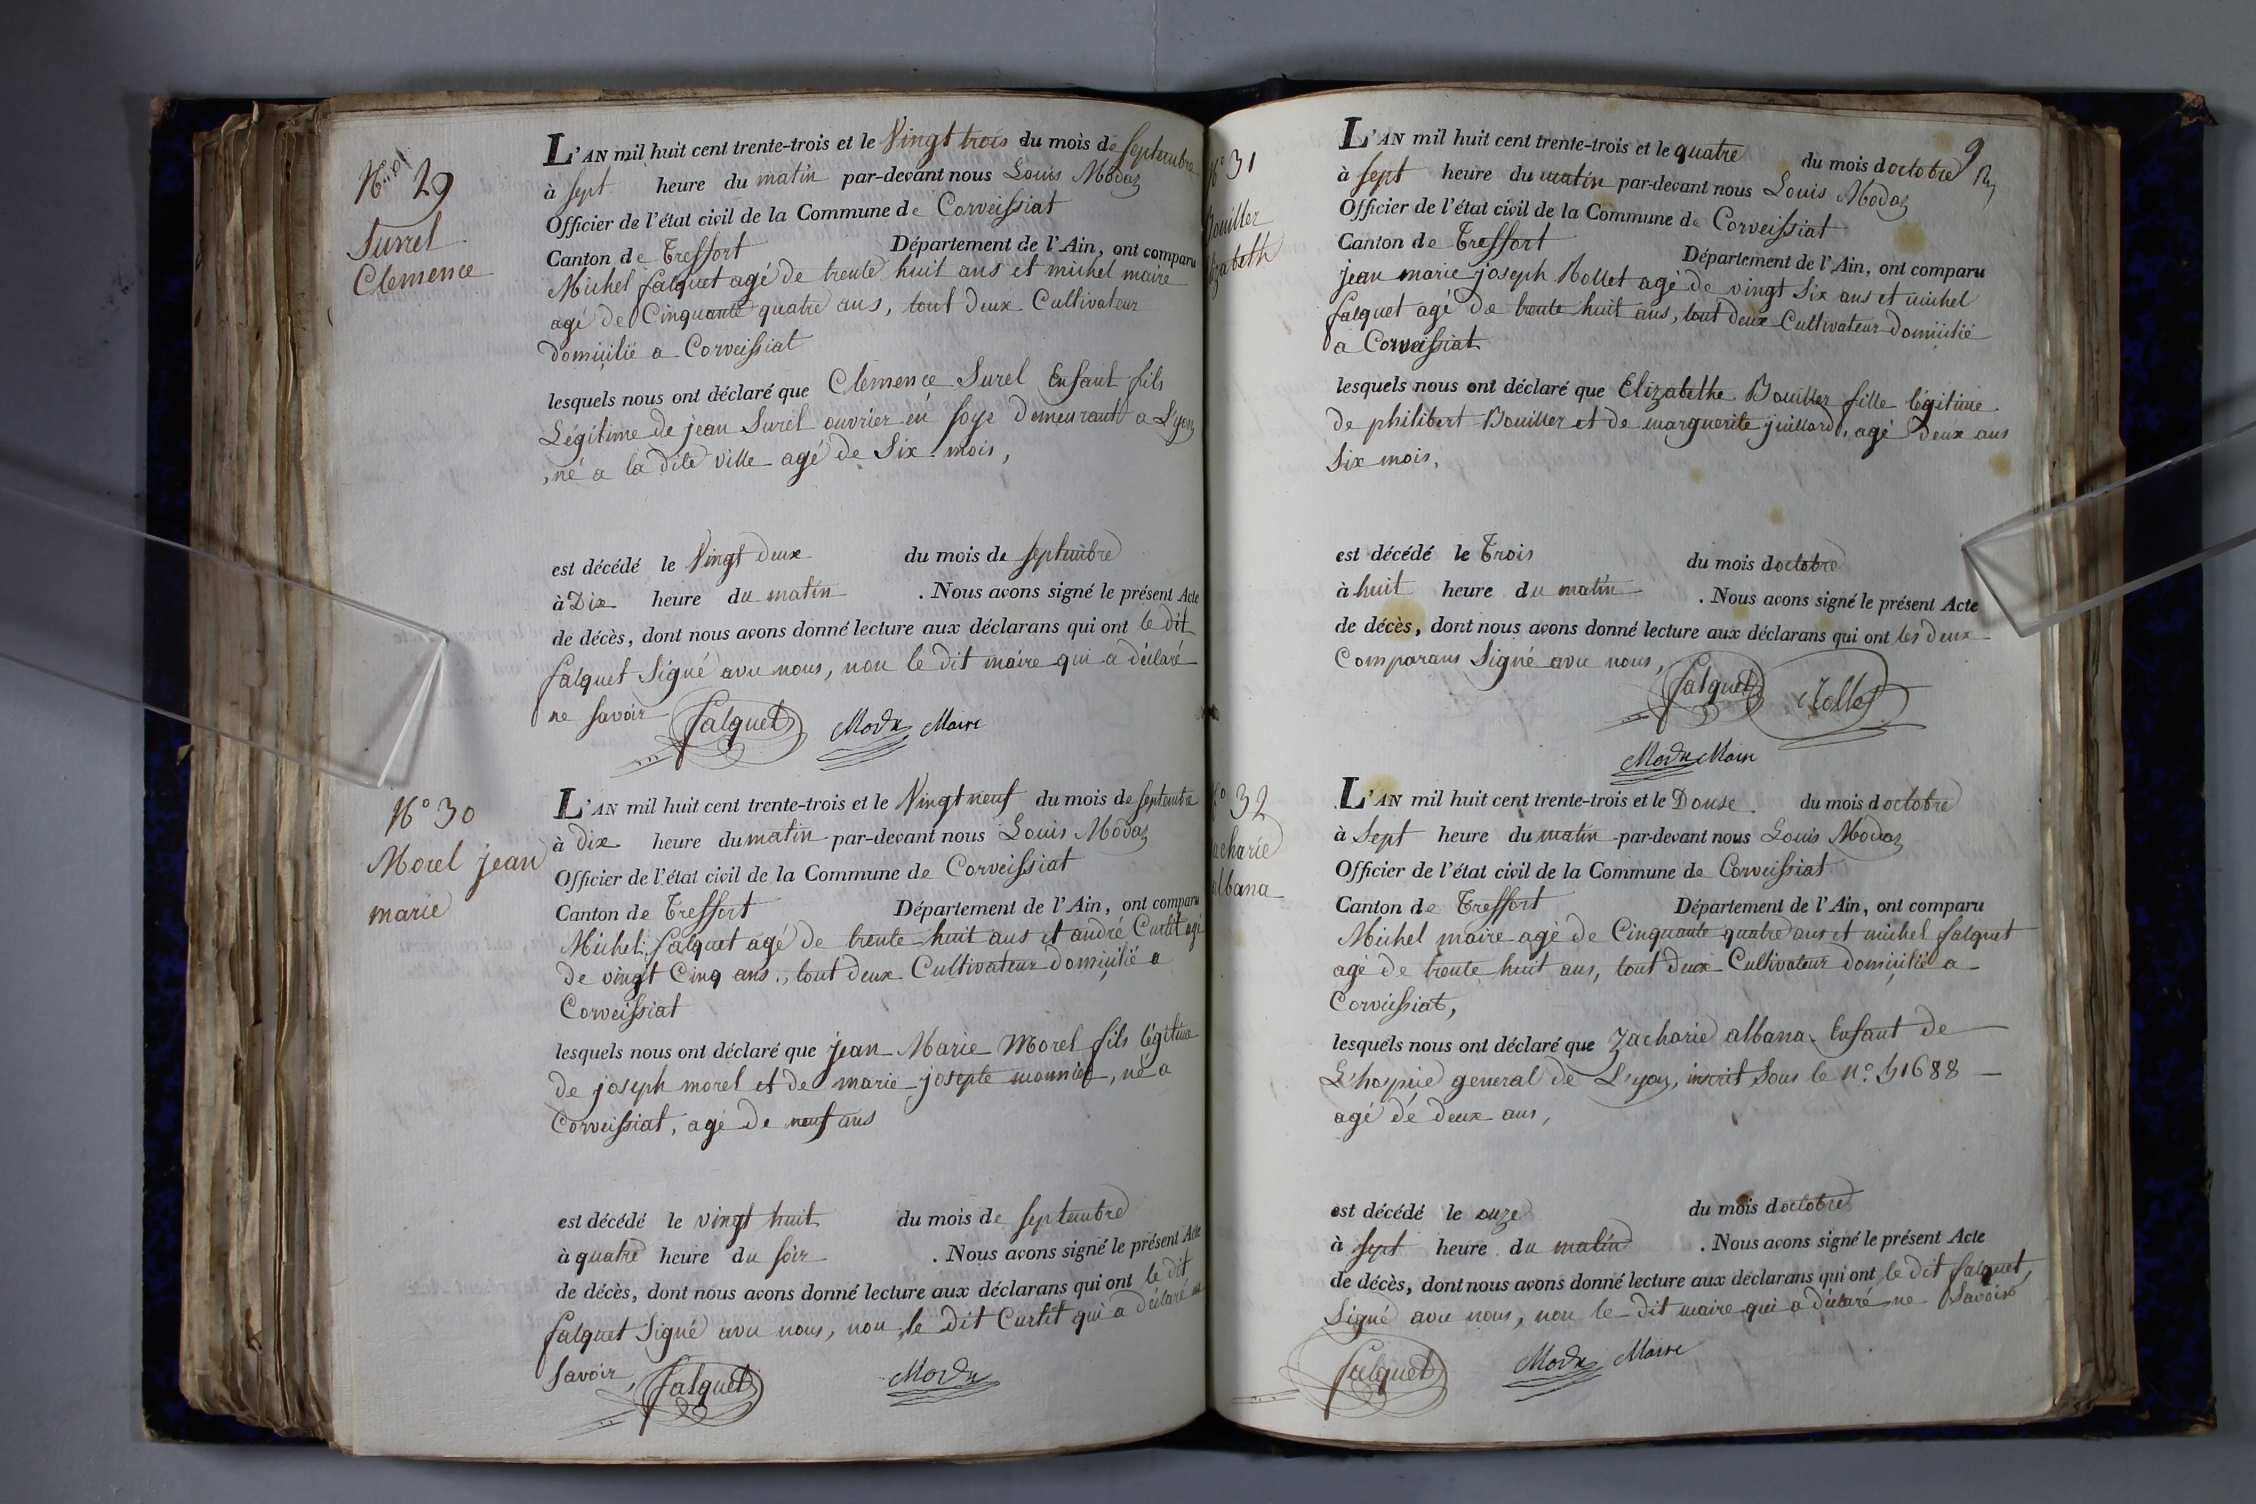 N° 29
Surrel
Clemence
L'AN mil huit cent trente-trois et le Vingt trois du mois de septembre
à sept heure du matin par-devant nous Louis Modaz
Officier de l'état civil de la Commune de Corveissiat
Canton de Treffort Département de l'Ain, ont comparu
Michel falquet agé de trente huit ans et michel maire
agé de Cinquante quatre ans, tout deux Cultivateur
domicilié a Corveissiat
lesquels nous ont déclaré que Clemence Surel Enfant fils
Légitime de jean Surel ouvrier en soye demeurant a Lyon
, né a la dite ville agé de Six mois,
est décédé le Vingt deux du mois de septembre
à Dix heure du matin . Nous avons signé le présent Acte
de décès, dont nous avons donné lecture aux déclarans qui ont le dit
falquet Signé avec nous, non le dit maire qui a déclaré
ne savoir falquet Modaz Maire
N° 30
Morel jean
marie
L'AN mil huit cent trente-trois et le Vingt neuf du mois de septembre
à dix heure du matin par-devant nous Louis Modaz
Officier de l'état civil de la Commune de Corveissiat
Canton de Treffort Département de l'Ain, ont comparu
Michel falquet agé de trente huit ans et andré Curtit agé
de vingt Cinq ans, tout deux Cultivateur domicilié a
Corveissiat
lesquels nous ont déclaré que jean Marie Morel fils légitime
de joseph morel et de marie josepte monnier, né a
Corveissiat, agé de neuf ans
est décédé le vingt huit du mois de septembre
à quatre heure du soir . Nous avons signé le présent Acte
de décès, dont nous avons donné lecture aux déclarans qui ont le dit
falquet Signé avec nous, non le dit Curtit qui a déclaré ne
savoir, falquet Modaz
9
N° 31
Bouiller
Elizabeth
L'AN mil huit cent trente-trois et le quatre du mois doctobre
à sept heure du matin par-devant nous Louis Modaz
Officier de l'état civil de la Commune de Corveissiat
Canton de Treffort Département de l'Ain, ont comparu
jean marie joseph Rollet agé de vingt Six ans et michel
falquet agé de trente huit ans, tout deux Cultivateur domicilié
a Corveissiat
lesquels nous ont déclaré que Elizabethe Bouiller fille légitime
de philibert Bouiller et de marguerite juillard, agé deux ans
Six mois,
est décédé le Trois du mois doctobre
à huit heure du matin . Nous avons signé le présent Acte
de décès, dont nous avons donné lecture aux déclarans qui ont les deux
Comparans Signé avec nous, falquet Rollet
Modaz Maire
N° 32
Zacharie
albana
L'AN mil huit cent trente-trois et le Douse du mois doctobre
à Sept heure du matin par-devant nous Louis Modaz
Officier de l'état civil de la Commune de Corveissiat
Canton de Treffort Département de l'Ain, ont comparu
Michel maire agé de Cinquante quatre ans et michel falquet
agé de trente huit ans, tout deux Cultivateur domicilié a
Corveissiat,
lesquels nous ont déclaré que Zacharie albana Enfant de
L'hospice general de Lyon, inscrit Sous le N°. 51688
agé de deux ans,
est décédé le onze du mois doctobre
à sept heure du matin . Nous avons signé le présent Acte
de décès, dont nous avons donné lecture aux déclarans qui ont le dit falquet,
Signé avec nous, non le dit maire qui a déclaré ne Savoir
falquet Modaz Maire